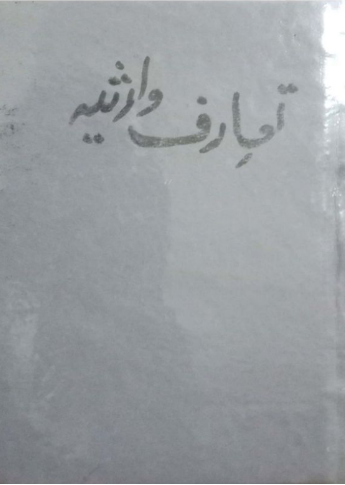 تعارف وارثیہ